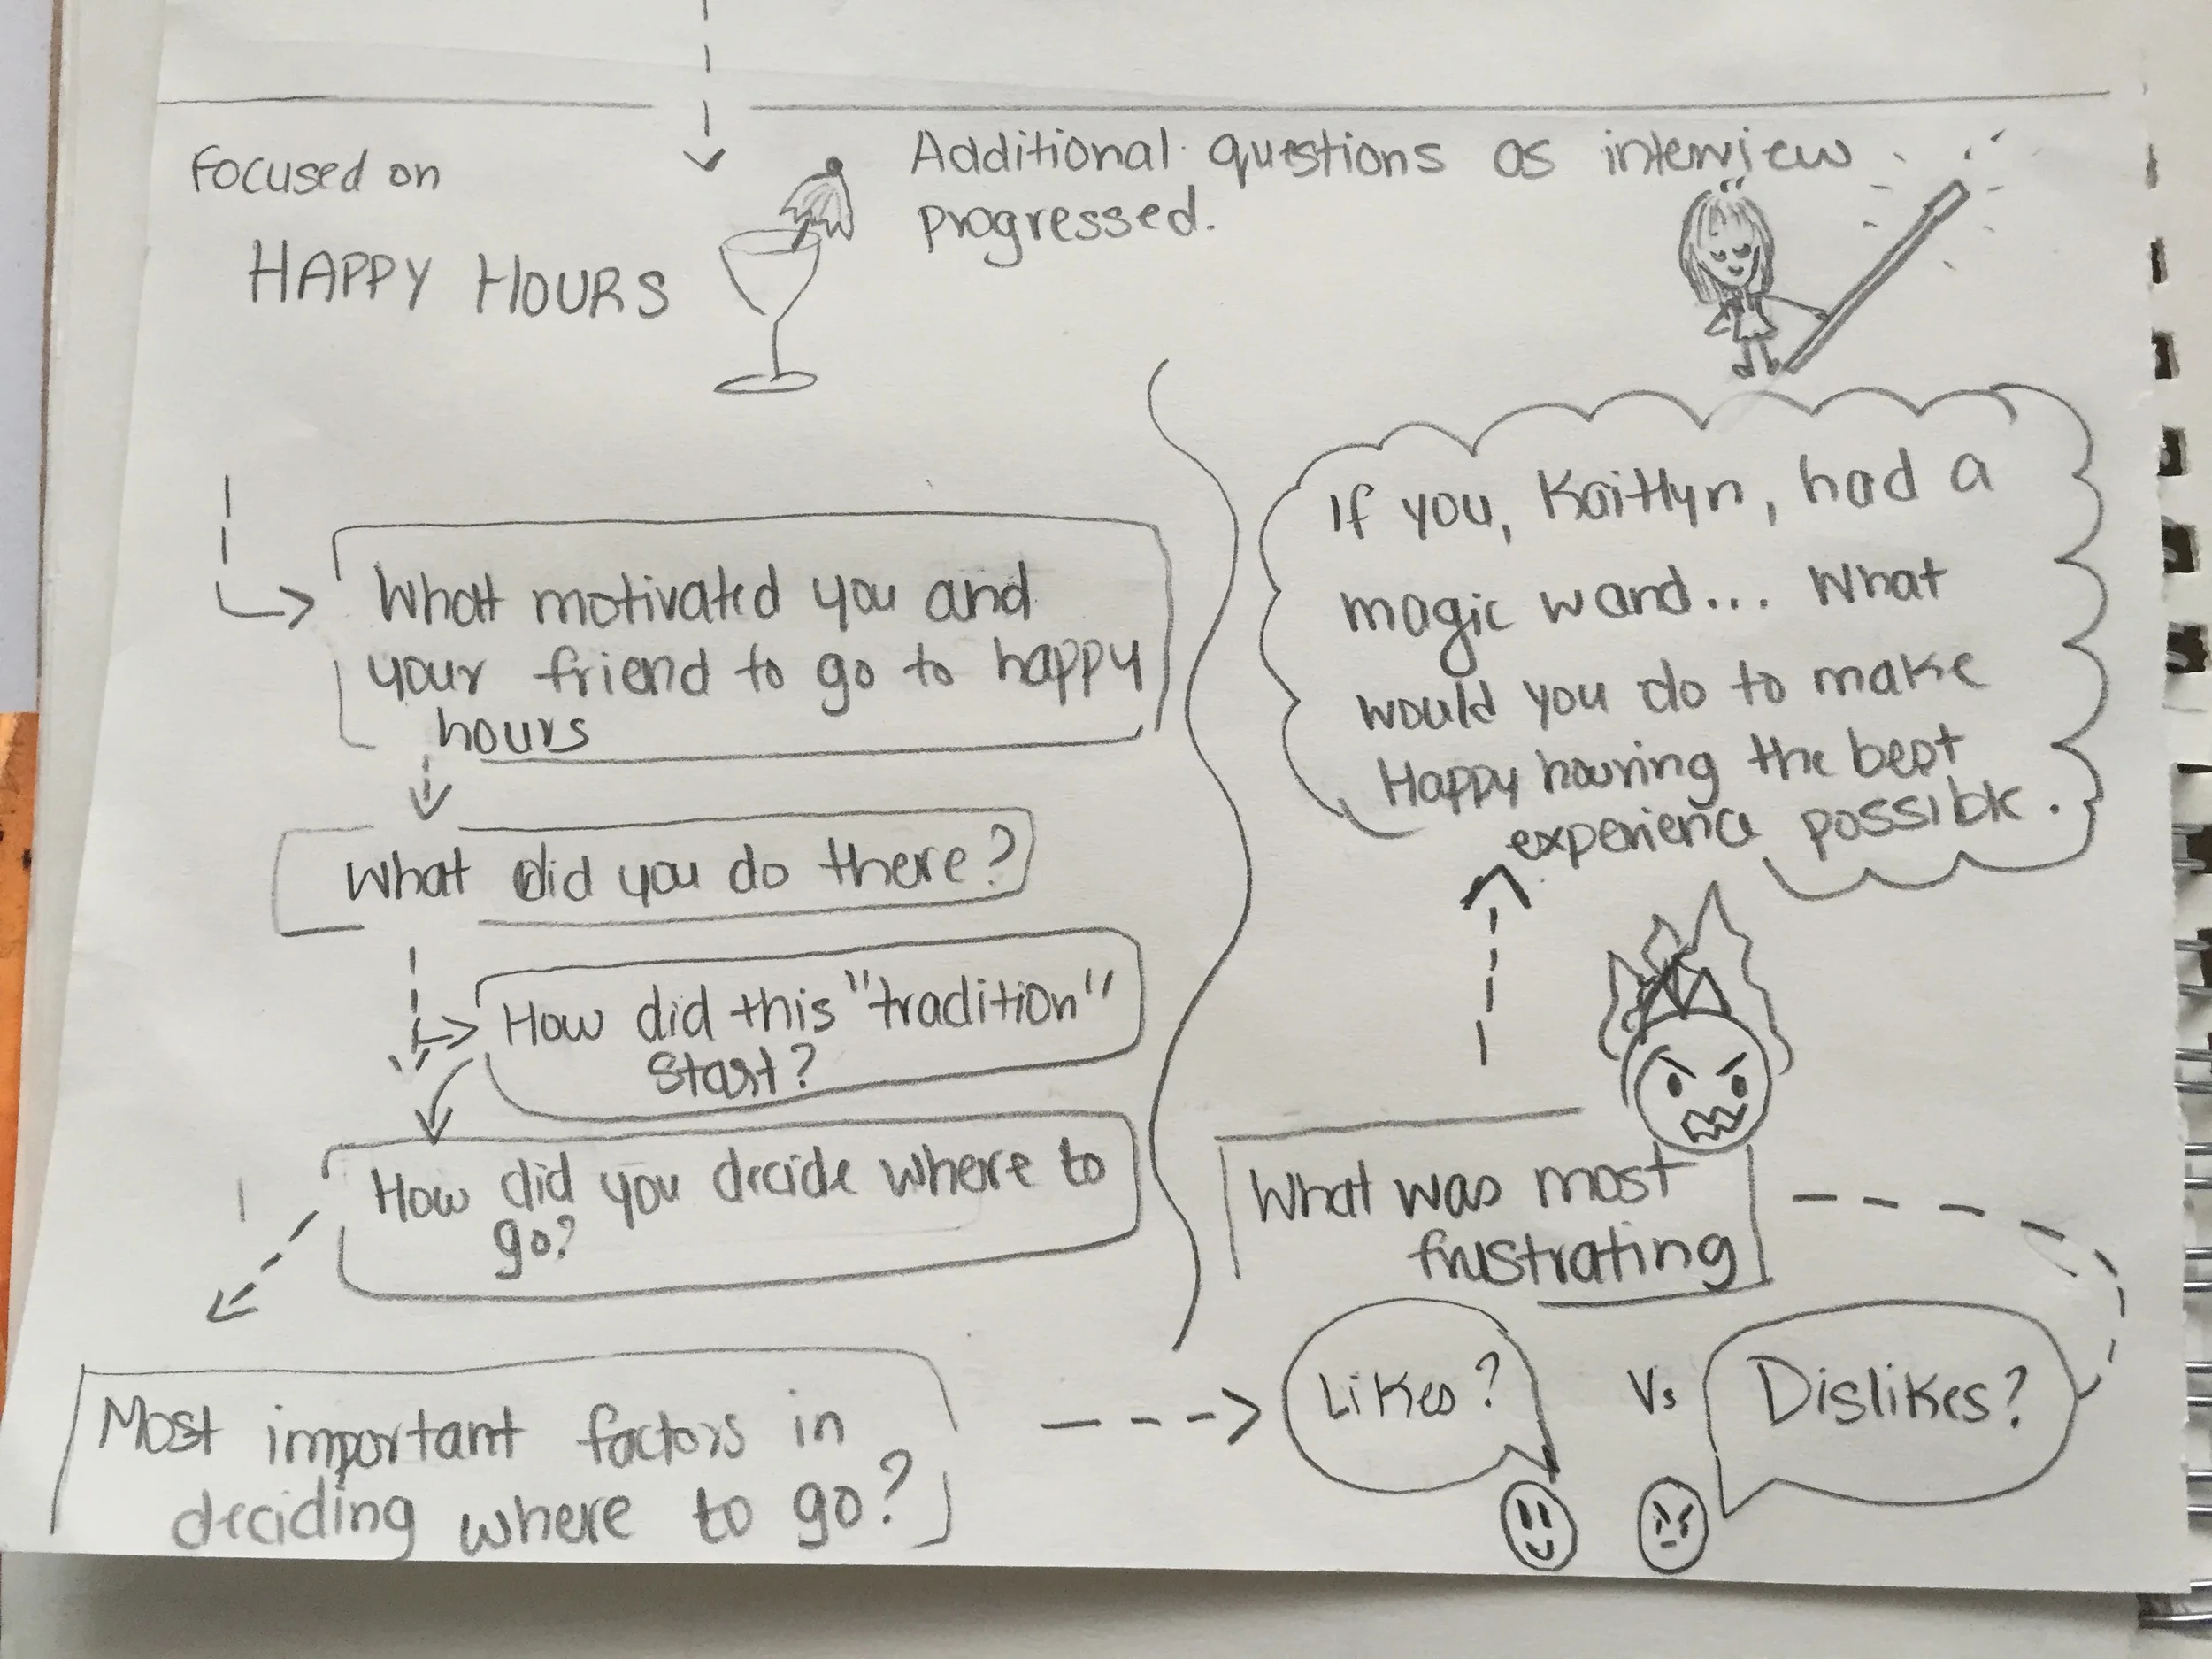 Focused on
HAPPY HOURS
Additional questions as interview
progressed.
What motivated you and
your friend to go to happy
hours
What did you do there?
How did this "tradition"
start?
How did you decide where to
go?
Most important factors in
deciding where to go?
Likes?
Vs
Dislikes?
What was most
frustrating
If you, Kaitlyn, had a
magic wand... What
would you do to make
Happy houring the best
experience possible.